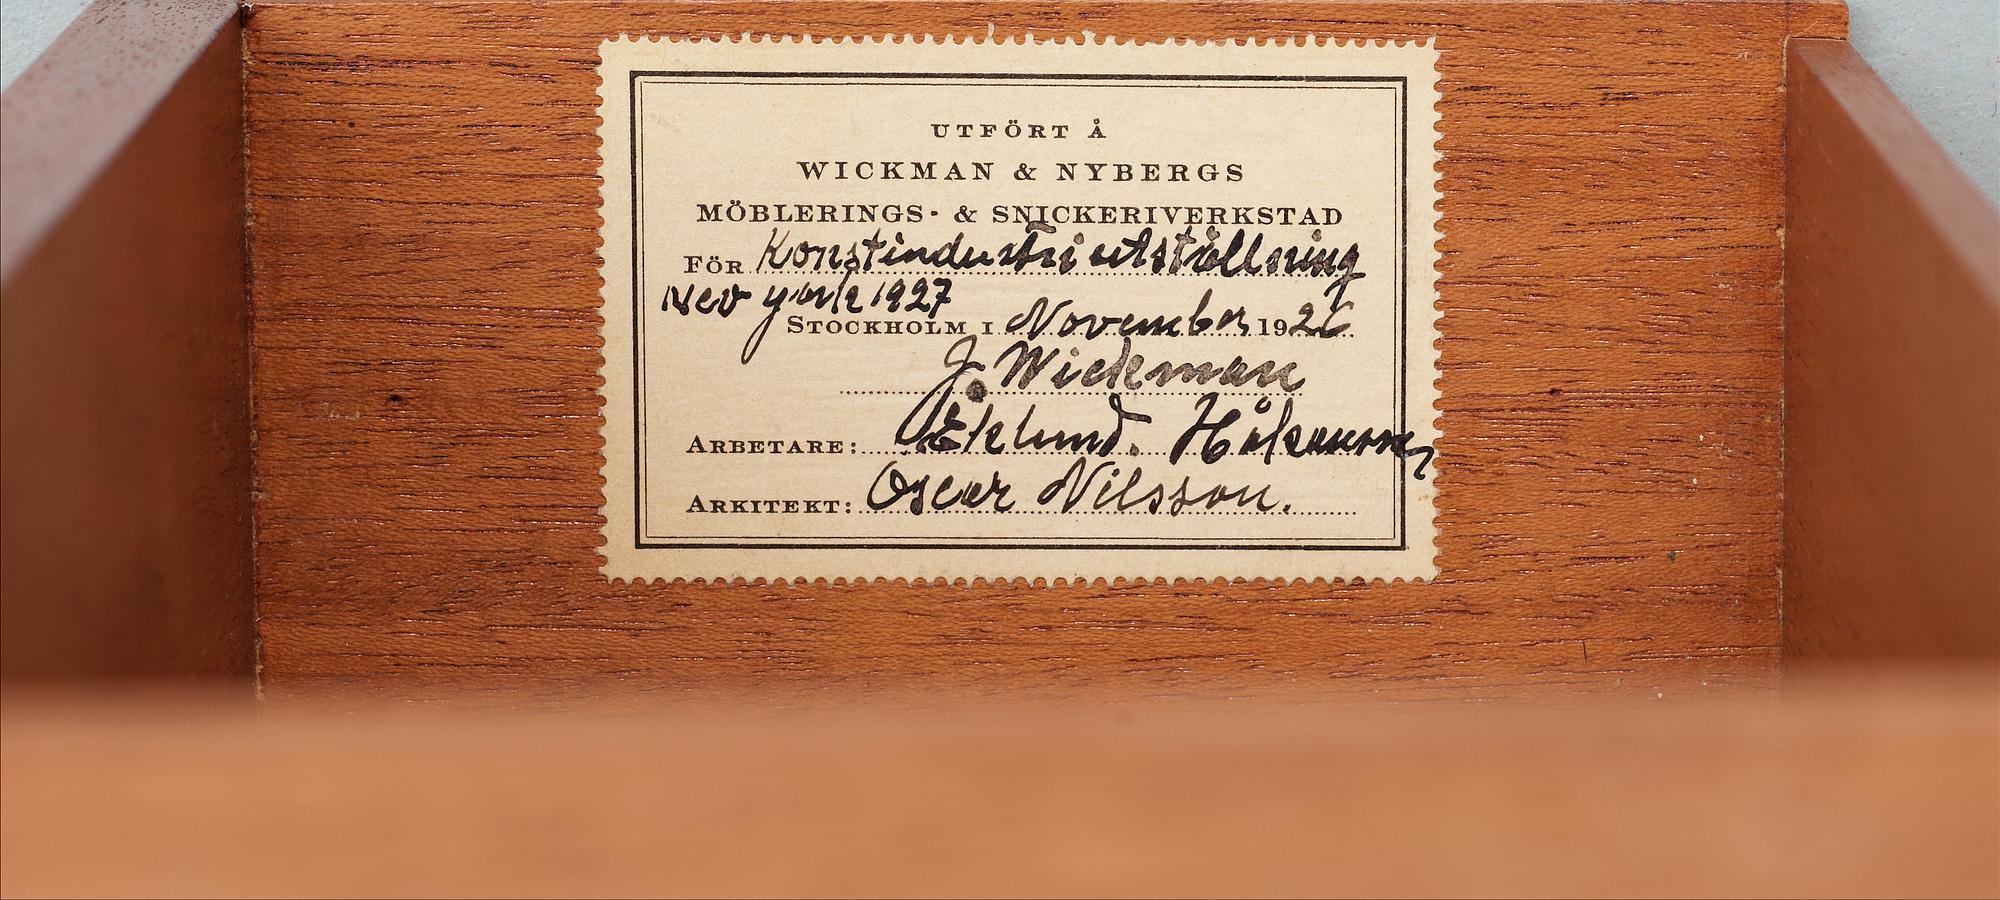 UTFÖRT Å
WICKMAN & NYBERGS
MÖBLERINGS- & SNICKERIVERKSTAD
FÖR Konstindustriutställning
New york 1927
STOCKHOLM I November 1926
J. Wickman
ARBETARE: Eklund.
ARKITEKT: Oscar Nilsson.